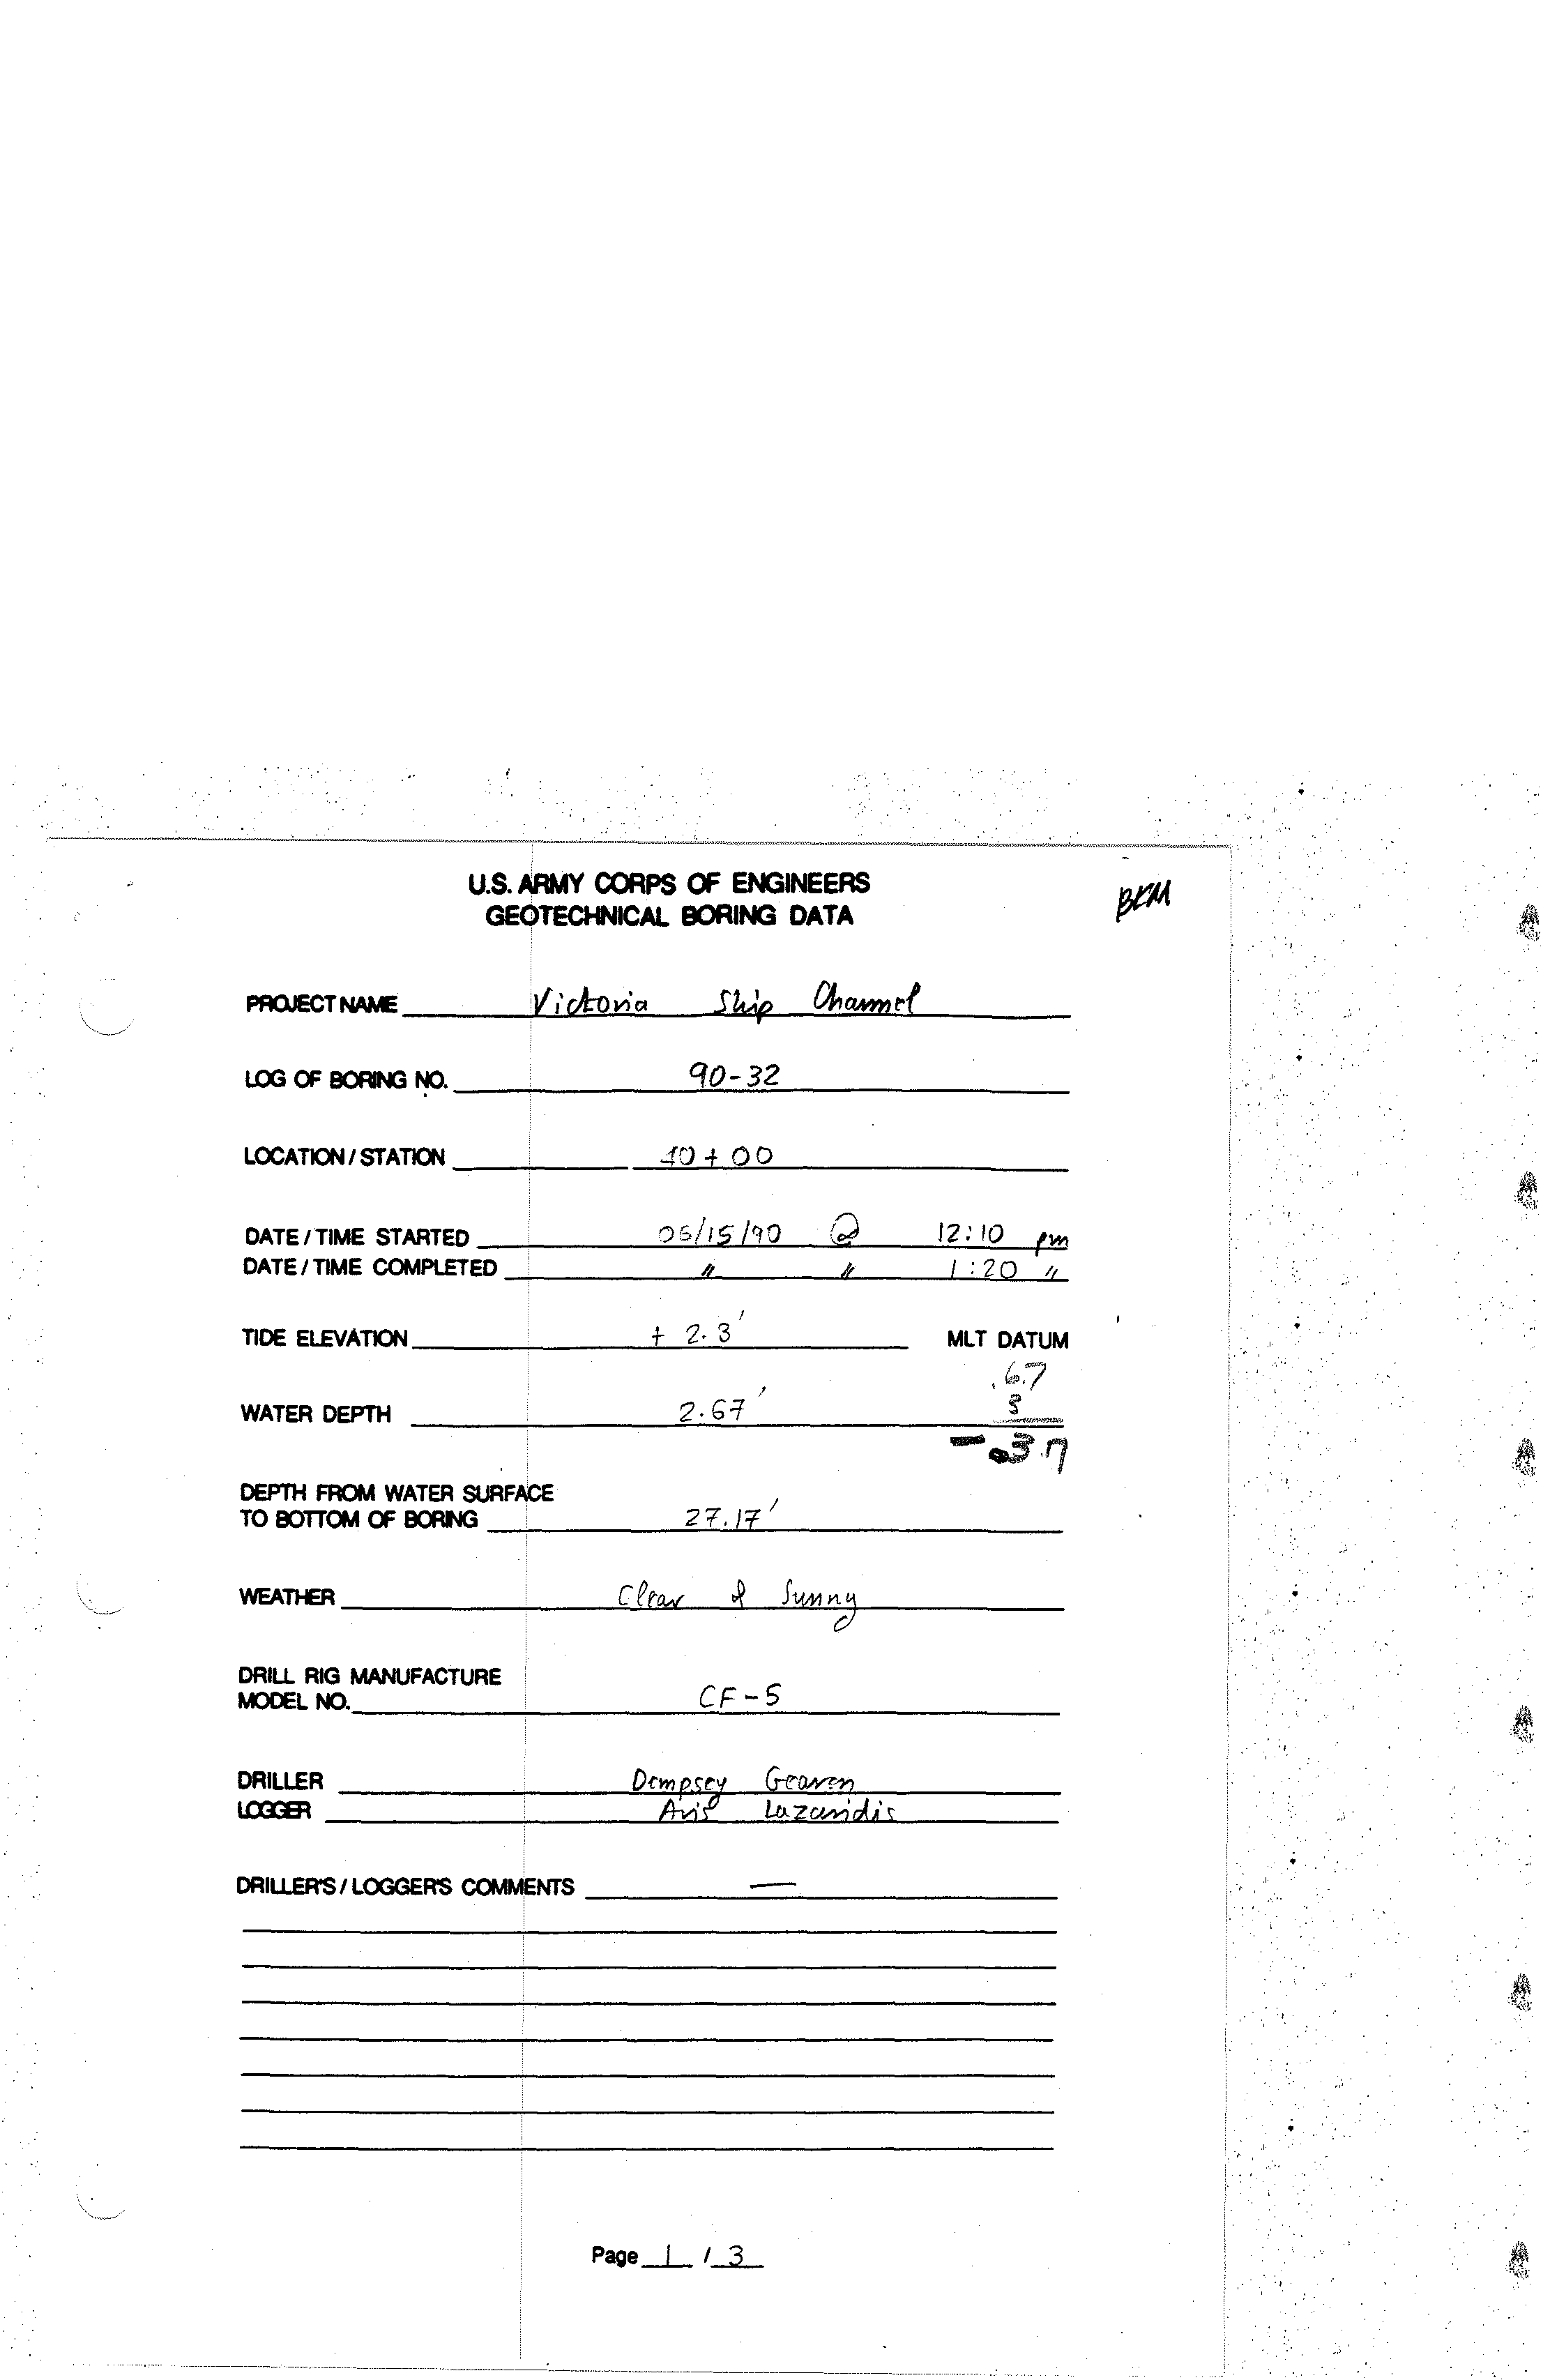 U.S. ARMY CORPS OF ENGINEERS
GEOTECHNICAL BORING DATA
BKM
PROJECT NAME Victoria Ship Channel
LOG OF BORING NO. 90-32
LOCATION / STATION 10+00
DATE / TIME STARTED 06/15/90 @ 12:10 pm
DATE / TIME COMPLETED " " 1:20 "
TIDE ELEVATION + 2.3' MLT DATUM
.67
WATER DEPTH 2.67' 3
-.37
DEPTH FROM WATER SURFACE
TO BOTTOM OF BORING 27.17'
WEATHER Clear & Sunny
DRILL RIG MANUFACTURE
MODEL NO. CF-5
DRILLER Dempsey
LOGGER Aris Lazaridis
DRILLER'S / LOGGER'S COMMENTS —
Page 1 / 3